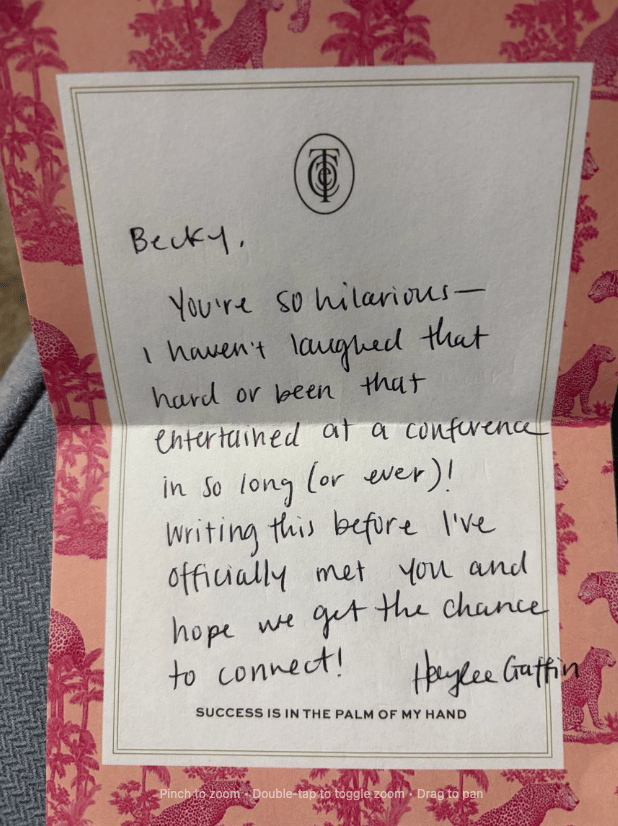 Becky,
You're so hilarious—
I haven't laughed that
hard or been that
entertained at a conference
in so long (or ever)!
Writing this before I've
officially met you and
hope we get the chance
to connect!
Haylee Gaffin
SUCCESS IS IN THE PALM OF MY HAND
Pinch to zoom • Double-tap to toggle zoom • Drag to pan